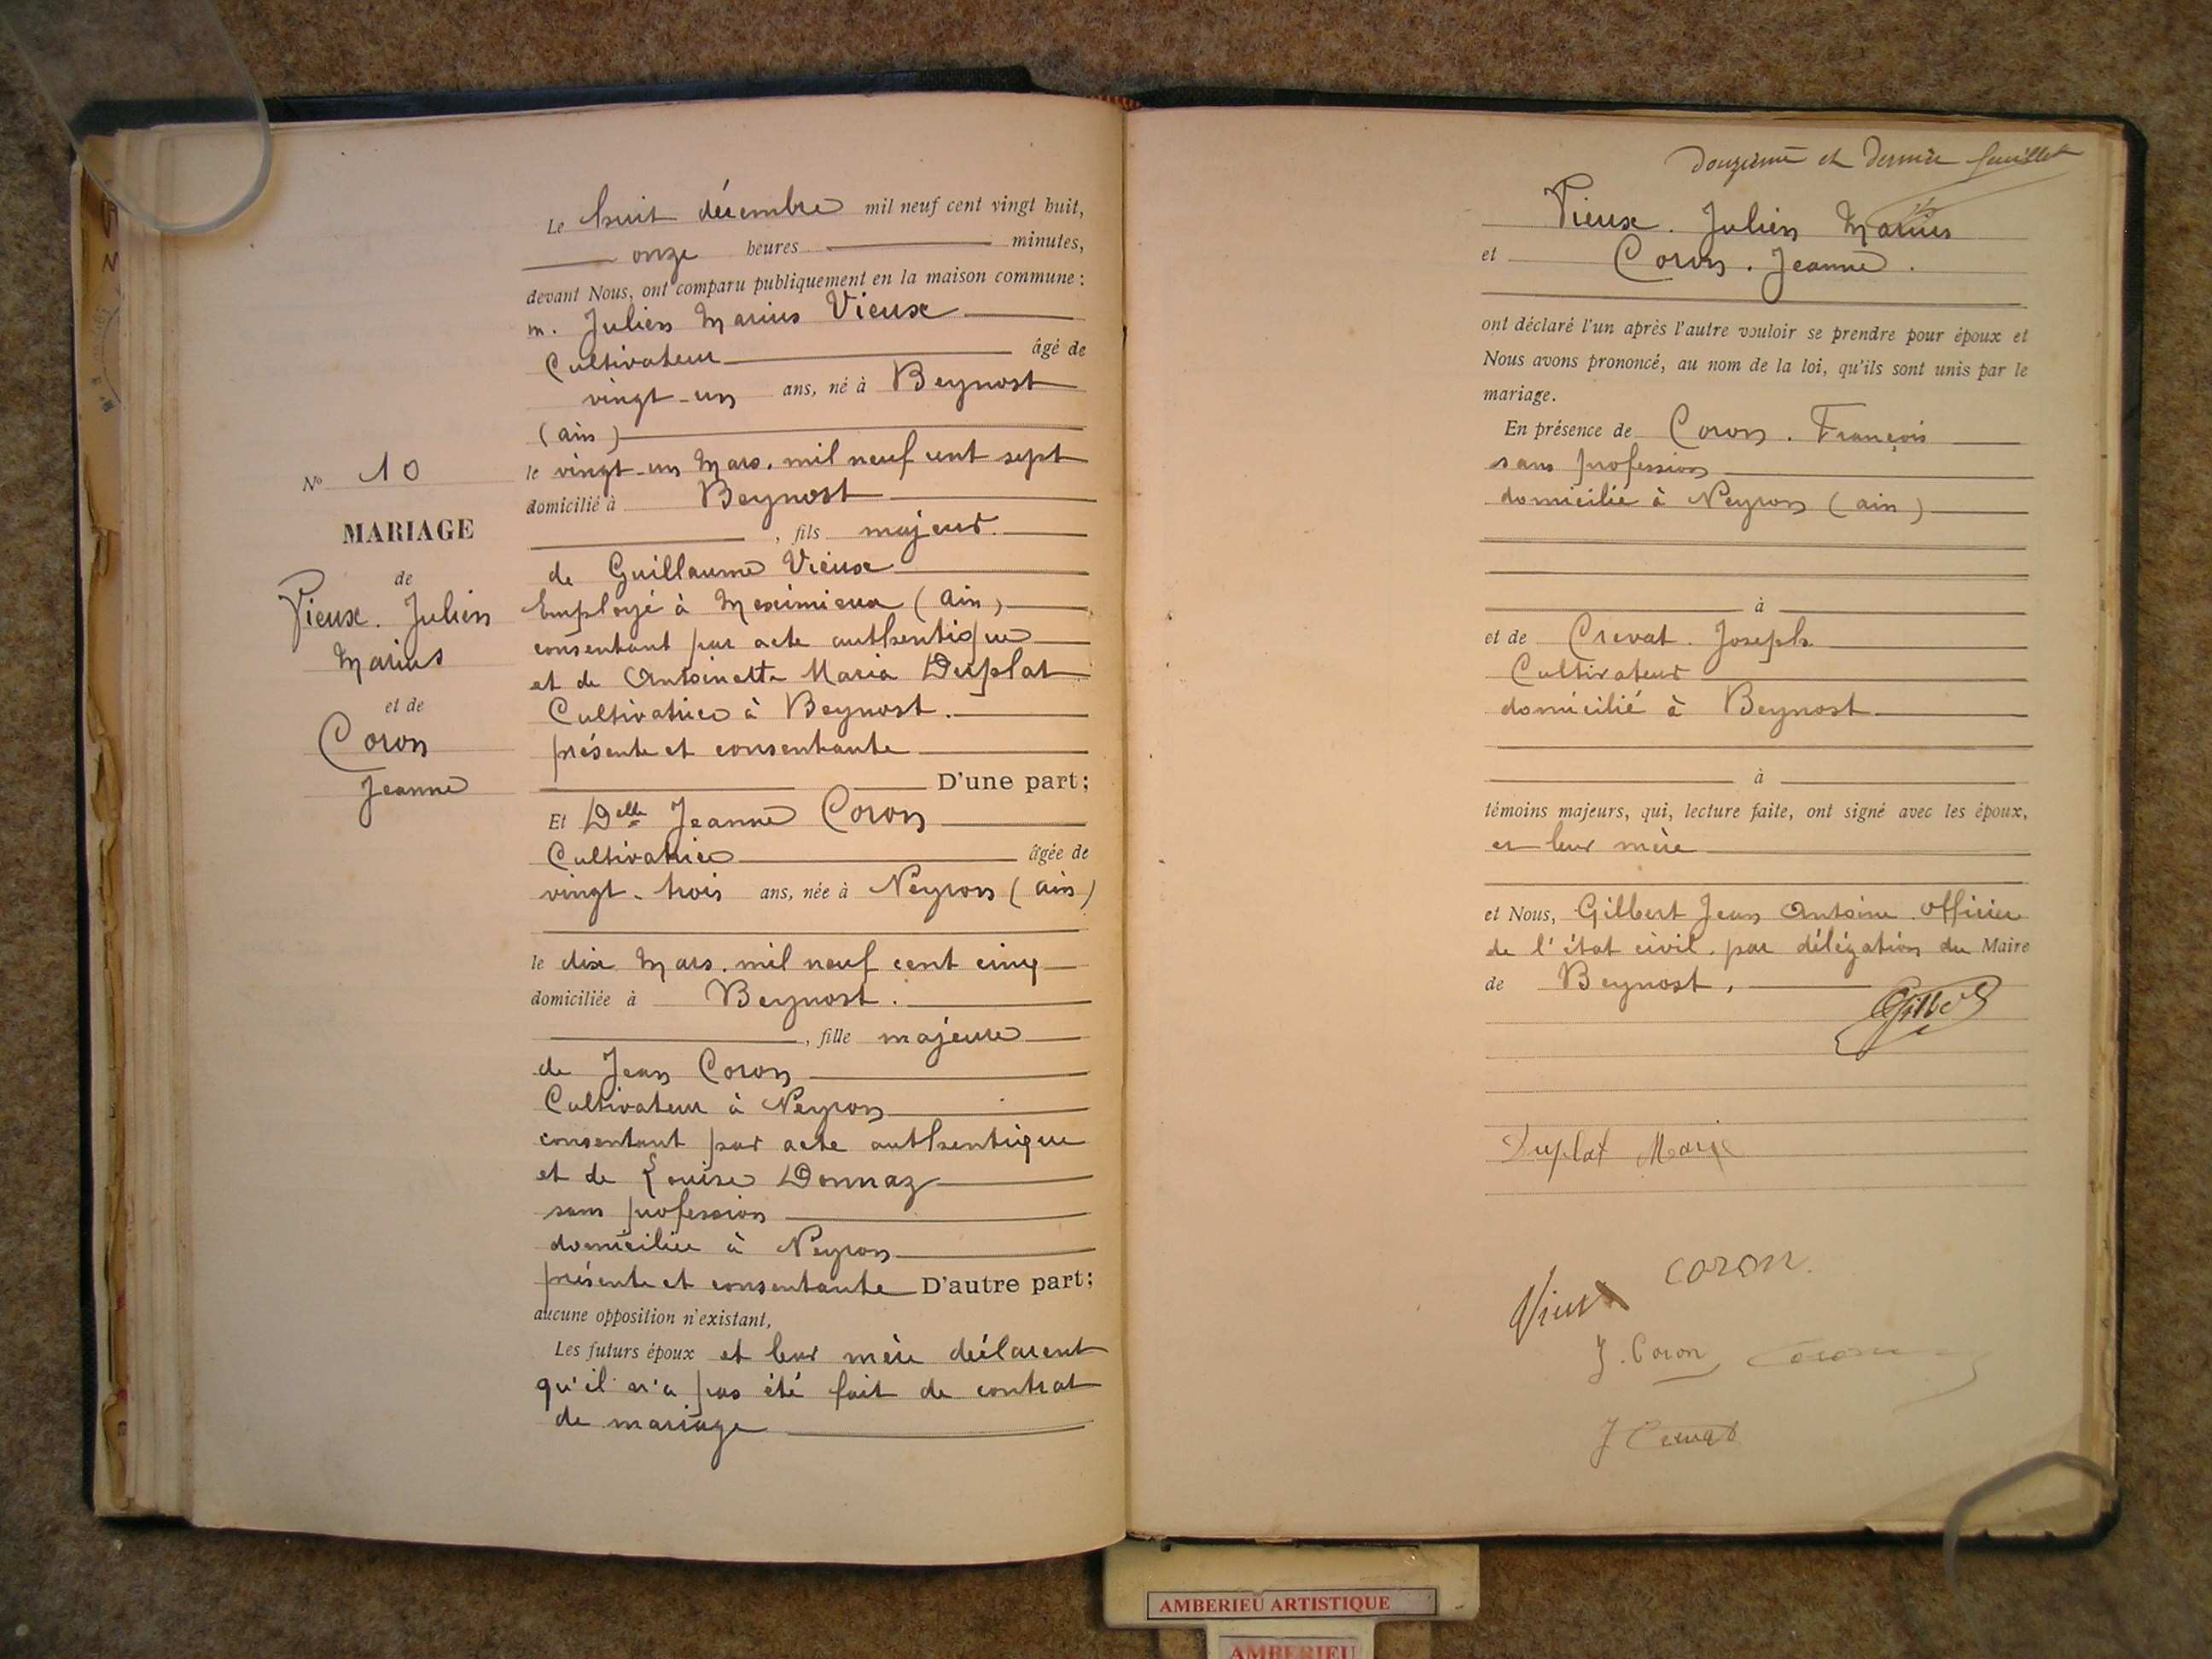 Nº 10
MARIAGE
de
Vieux. Julien
Marius
et de
Coron
Jeanne
Le huit décembre mil neuf cent vingt huit,
onze heures minutes,
devant Nous, ont comparu publiquement en la maison commune :
m. Julien Marius Vieux
Cultivateur âgé de
vingt-un ans, né à Beynost
(ain)
le vingt-un Mars. mil neuf cent sept
domicilié à Beynost
, fils majeur.
de Guillaume Vieux
Employé à Meximieux (Ain)
consentant par acte authentique
et de Antoinette Maria Duplat
Cultivatrice à Beynost.
présente et consentante
D'une part;
Et Delle Jeanne Coron
Cultivatrice âgée de
vingt-trois ans, née à Neyron (ain)
le dix Mars. mil neuf cent cinq
domiciliée à Beynost.
, fille majeure
de Jean Coron
Cultivateur à Neyron
consentant par acte authentique
et de Louise Donnaz
sans profession
domiciliée à Neyron
présente et consentante D'autre part;
aucune opposition n'existant,
Les futurs époux et leur mère déclarent
qu'il n'a pas été fait de contrat
de mariage
Douzième et dernier feuillet
Vieux. Julien Marius
et Coron. Jeanne.
ont déclaré l'un après l'autre vouloir se prendre pour époux et
Nous avons prononcé, au nom de la loi, qu'ils sont unis par le
mariage.
En présence de Coron. François
sans profession
domicilié à Neyron (ain)
à
et de Crevat. Joseph.
Cultivateur
domicilié à Beynost
à
témoins majeurs, qui, lecture faite, ont signé avec les époux,
et leur mère
et Nous, Gilbert Jean Antoine officier
de l'état civil. par délégation du Maire
de Beynost,
Gilbert
Duplat Marie
coron.
Vieux
J. Coron Coron
J Crevat
AMBERIEU ARTISTIQUE
AMBERIEU